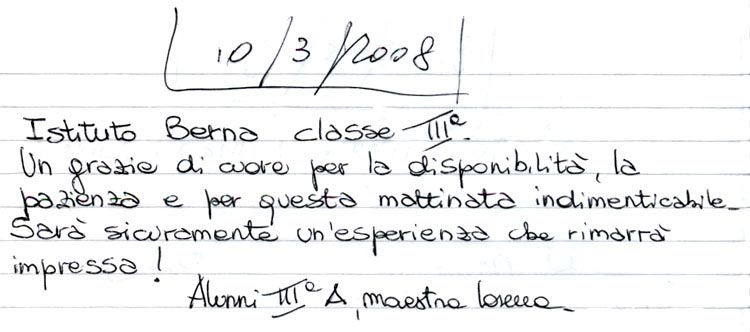 10/3/2008
Istituto Berna classe IIIª.
Un grazie di cuore per la disponibilità, la
pazienza e per questa mattinata indimenticabile.
Sarà sicuramente un'esperienza che rimarrà
impressa!
Alunni IIIª A, maestra Lorena.